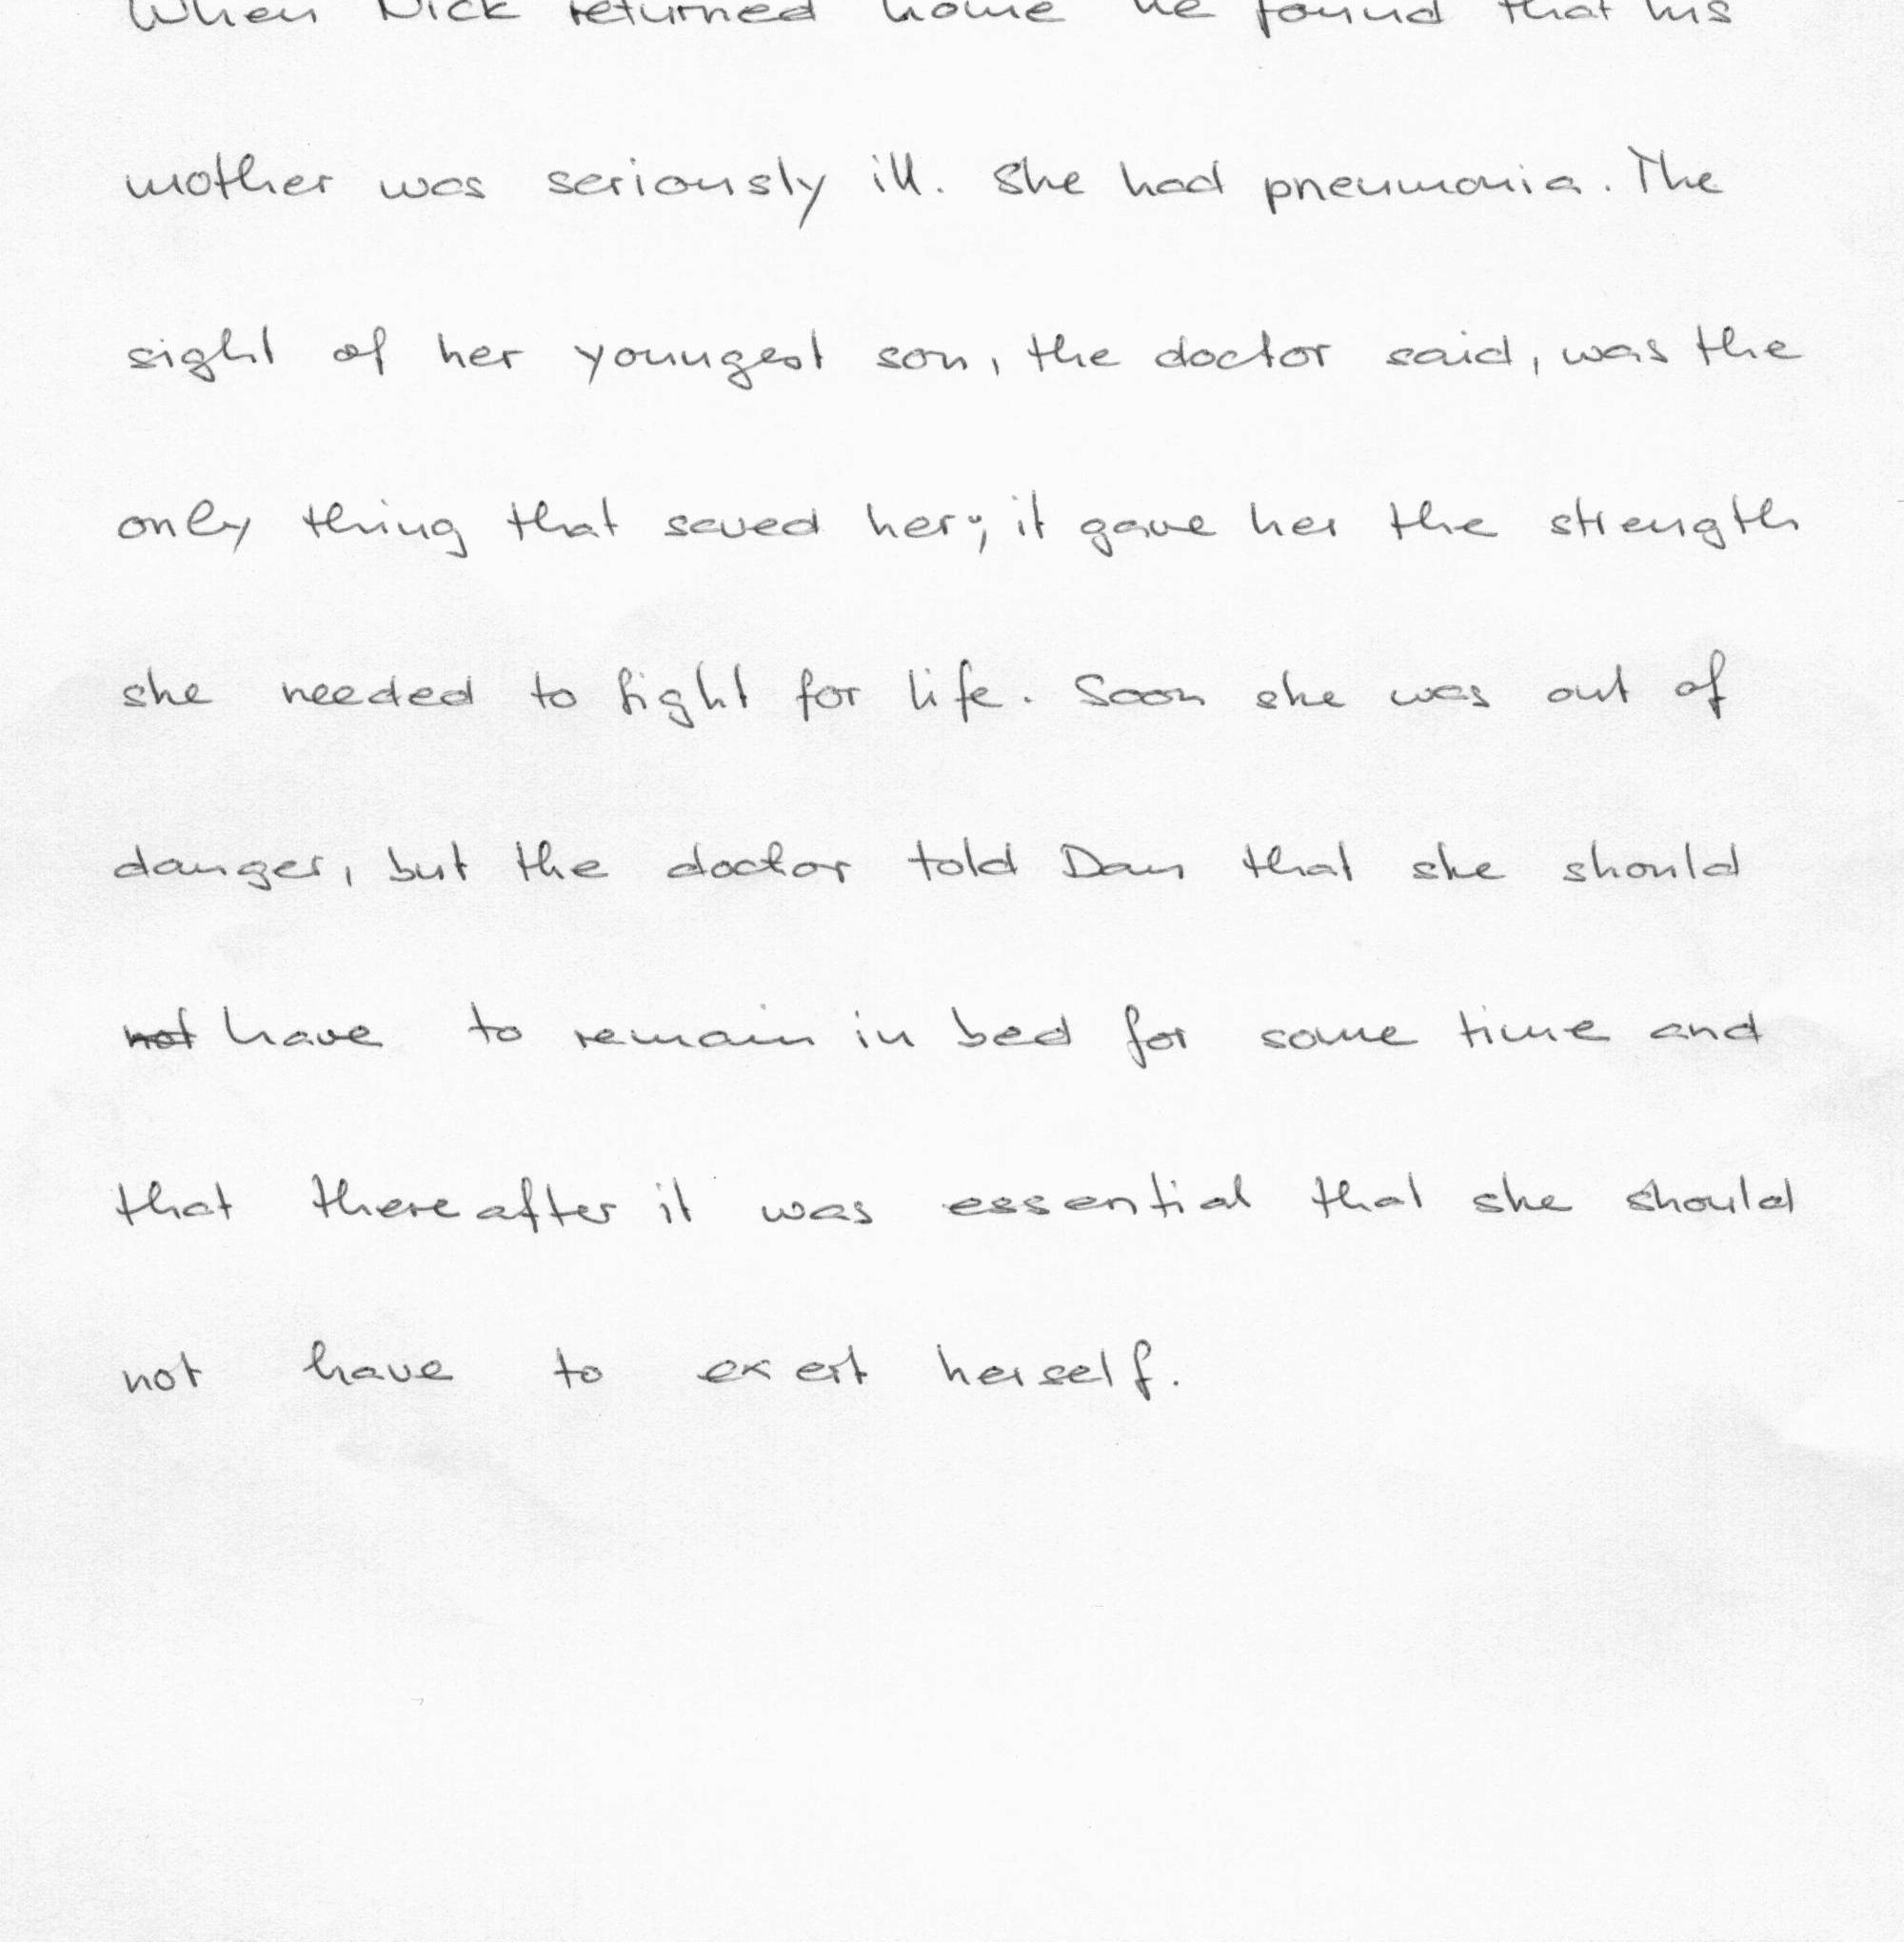 When Nick returned home he found that his
mother was seriously ill. She had pneumonia. The
sight of her youngest son, the doctor said, was the
only thing that saved her; it gave her the strength
she needed to fight for life. Soon she was out of
danger, but the doctor told Dan that she should
not have to remain in bed for some time and
that thereafter it was essential that she should
not have to exert herself.